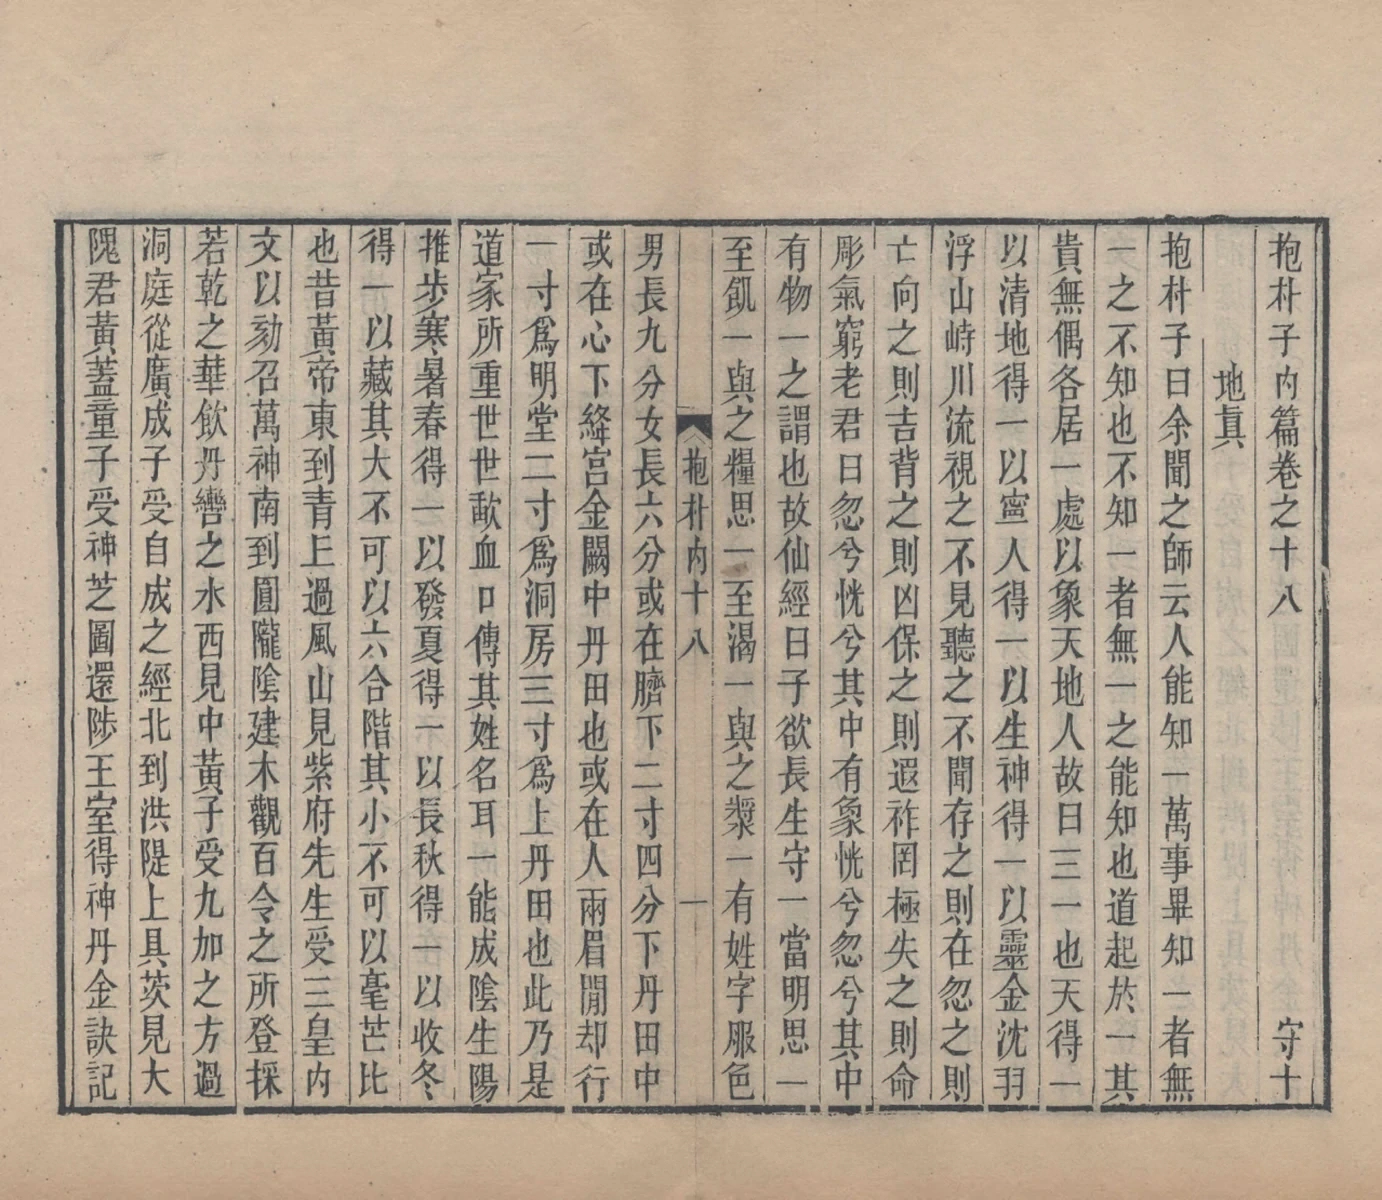 抱朴子內篇卷之十八　守十
地眞
抱朴子曰余聞之師云人能知一萬事畢知一者無
一之不知也不知一者無一之能知也道起於一其
貴無偶各居一處以象天地人故曰三一也天得一
以清地得一以寧人得一以生神得一以靈金沈羽
浮山峙川流視之不見聽之不聞存之則在忽之則
亡向之則吉背之則凶保之則遐祚罔極失之則命
彫氣窮老君曰忽兮恍兮其中有象恍兮忽兮其中
有物一之謂也故仙經曰子欲長生守一當明思一
至飢一與之糧思一至渴一與之漿一有姓字服色
抱朴內十八　一
男長九分女長六分或在臍下二寸四分下丹田中
或在心下絳宮金闕中丹田也或在人兩眉閒却行
一寸爲明堂二寸爲洞房三寸爲上丹田也此乃是
道家所重世世歃血口傳其姓名耳一能成陰生陽
推步寒暑春得一以發夏得一以長秋得一以收冬
得一以藏其大不可以六合階其小不可以毫芒比
也昔黃帝東到青上過風山見紫府先生受三皇內
文以劾召萬神南到圓隴陰建木觀百令之所登採
若乾之華飲丹巒之水西見中黃子受九加之方過
洞庭從廣成子受自成之經北到洪隄上具茨見大
隗君黃蓋童子受神芝圖還陟王室得神丹金訣記